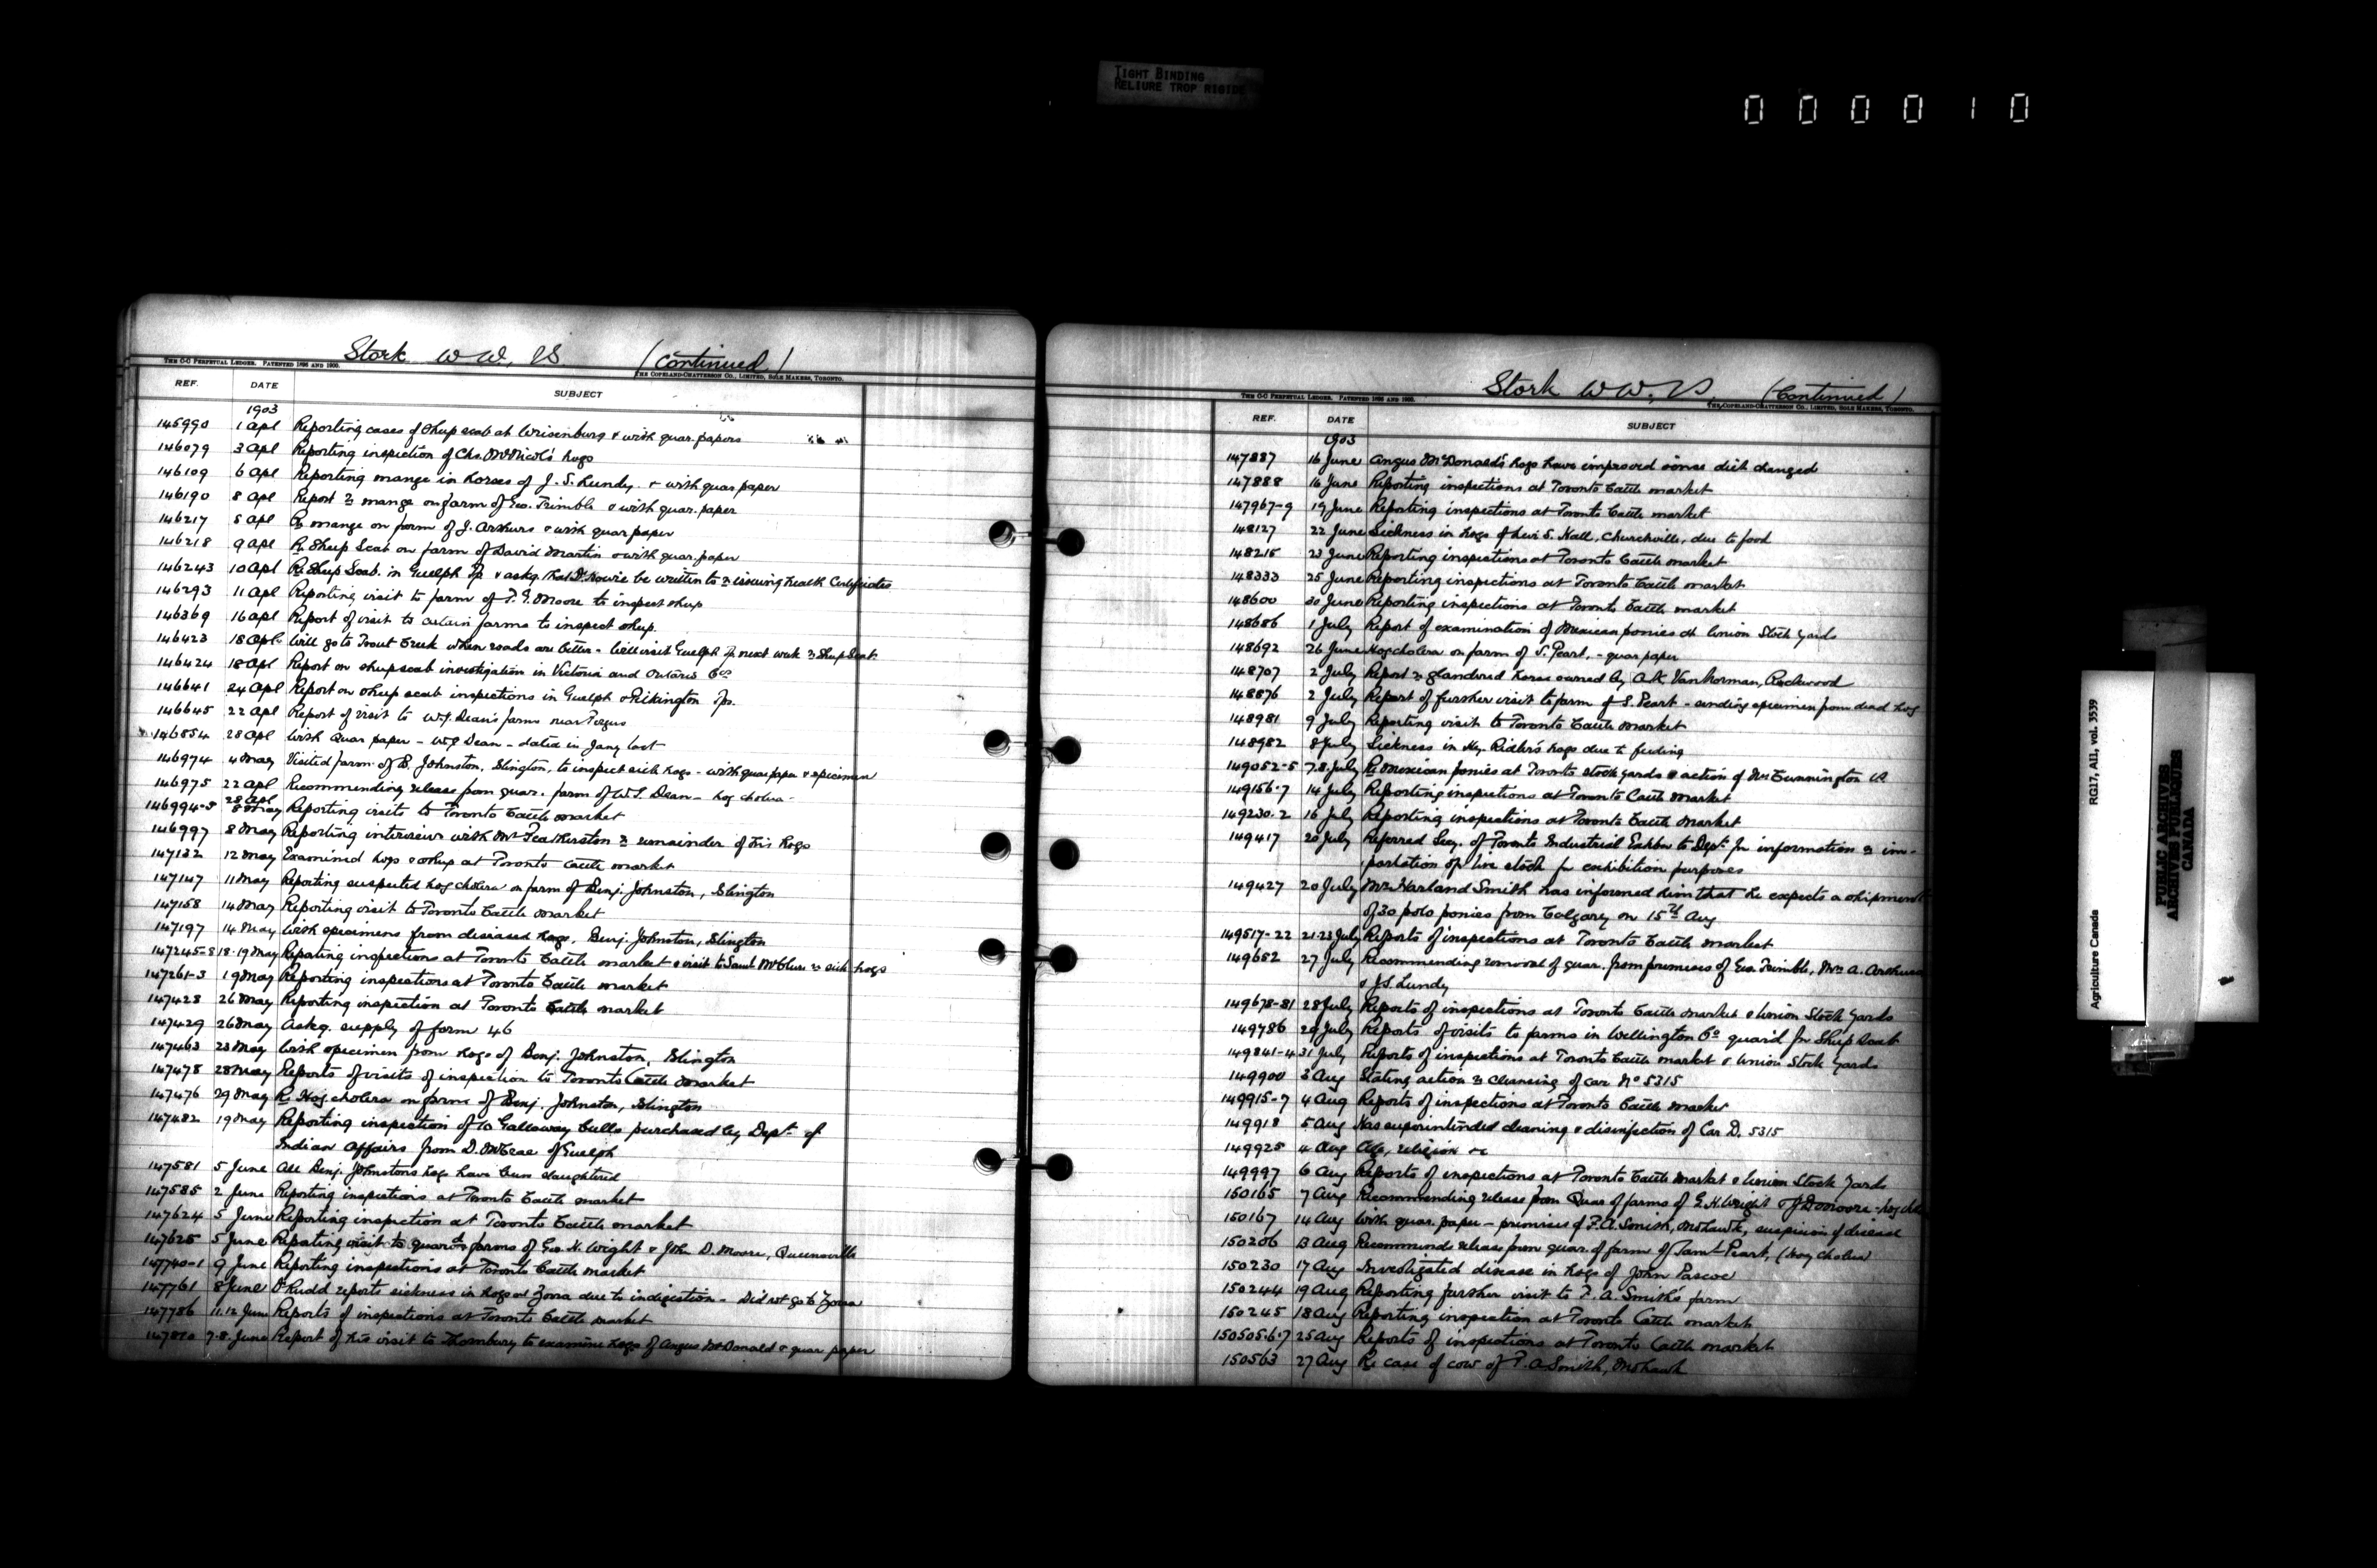 TIGHT BINDING
RELIURE TROP RIGIDE
000010
Stork W W, VS (Continued)
THE C-C PERPETUAL LEDGER. PATENTED 1896 AND 1900. THE COPELAND-CHATTERSON CO., LIMITED, SOLE MAKERS, TORONTO.
REF. DATE SUBJECT
1903
145990 1 Apl Reporting cases of Sheep scab at & with quar. papers
146079 3 Apl Reporting inspection of Chs. McNicol's hogs
146109 6 Apl Reporting mange in horses of J. S. Lundy. & with quar paper
146190 8 Apl Report re mange on farm of Geo. Trimble & with quar. paper
146217 8 Apl Re mange on farm of J. Arthurs & with quar paper
146218 9 Apl Re Sheep Scab on farm of David Martin & with quar. paper
146243 10 Apl Re Sheep Scab. in Guelph Tp & askg. that Dr. Howie be written to re issuing health Certificates
146293 11 Apl Reporting visit to farm of F. G. Moore to inspect sheep
146369 16 Apl Report of visit to certain farms to inspect sheep.
146423 18 Apl. Will go to Trout Creek when roads are better - Will visit Guelph Tp next week re Sheep Scab.
146424 18 Apl Report on sheep scab investigation in Victoria and Ontario Cos
146641 24 Apl Report on sheep scab inspections in Guelph & Pilkington Tps.
146645 22 Apl Report of visit to W.J. Dean's farms near Fergus
146854 28 Apl With Quar paper - W.J Dean - dated in Jany last
146974 4 May Visited farm of B. Johnston, Islington, to inspect sick hogs - with quar paper & specimen
146975 22 Apl Recommending release from quar. farm of W.J. Dean - hog cholera -
28 Apl
146994-5 8 May Reporting visits to Toronto Cattle market
146997 8 May Reporting interview with Mr Featherston re remainder of his hogs
147132 12 May Examined hogs & sheep at Toronto Cattle market
147147 11 May Reporting suspected hog cholera on farm of Benj. Johnston, Islington
147158 14 May Reporting visit to Toronto Cattle market
147197 14 May With specimens from diseased hogs, Benj. Johnston, Islington
147245-8 18-19 May Reporting inspections at Toronto Cattle market & visit to Saml McClure re sick hogs
147261-3 19 May Reporting inspections at Toronto Cattle market
147428 26 May Reporting inspection at Toronto Cattle market
147429 26 May Askg. supply of form 46
147463 23 May With specimen from hogs of Benj. Johnston, Islington
147478 28 May Reports of visits of inspection to Toronto Cattle market
147476 29 May Re Hog cholera on farm of Benj. Johnston, Islington
147482 19 May Reporting inspection of 10 Galloway bulls purchased by Dept. of
Indian Affairs from D. McCrae of Guelph
147581 5 June All Benj. Johnstons hogs have been slaughtered
147585 2 June Reporting inspections at Toronto Cattle market
147624 5 June Reporting inspection at Toronto Cattle market
147625 5 June Reporting visit to quard farms of Geo. H. Wright & John D. Moore, Queensville
147740-1 9 June Reporting inspections at Toronto Cattle market
147761 8 June Dr Rudd reports sickness in hogs at Zorra due to indigestion - Did not go to Zorra
147786 11.12 June Reports of inspections at Toronto Cattle market
147810 7-8. June Report of his visit to Thornbury to examine hogs of Angus McDonald & quar paper
Stork W W, VS (Continued)
THE C-C PERPETUAL LEDGER. PATENTED 1896 AND 1900. THE COPELAND-CHATTERSON CO., LIMITED, SOLE MAKERS, TORONTO.
REF. DATE SUBJECT
1903
147887 16 June Angus McDonald's hogs have improved since diet changed
147888 16 June Reporting inspections at Toronto Cattle market
147967-9 19 June Reporting inspections at Toronto Cattle market
148127 22 June Sickness in hogs of Levi S. Hall, Churchville, due to food
148215 23 June Reporting inspections at Toronto Cattle market
148333 25 June Reporting inspections at Toronto Cattle market
148600 30 June Reporting inspections at Toronto Cattle market
148686 1 July Report of examination of Mexican ponies at Union Stock Yards
148692 26 June Hog cholera on farm of S. Peart, - quar paper
148707 2 July Report re glandered horse owned by A.K. VanNorman, Rockwood
148876 2 July Report of further visit to farm of S. Peart - sending specimen from dead hog
148981 9 July Reporting visit to Toronto Cattle market
148982 8 July Sickness in Hy. Ridler's hogs due to feeding
149052-5 7.8 July Re Mexican ponies at Toronto stock yards & action of Mr Cunnington VS
149156-7 14 July Reporting inspections at Toronto Cattle market
149230-2 16 July Reporting inspections at Toronto Cattle market
149417 20 July Referred Secy. of Toronto Industrial Exhbn to Dept. for information re im-
portation of live stock for exhibition purposes
149427 20 July Mr Harland Smith has informed him that he expects a shipment
of 30 polo ponies from Calgary on 15th Aug
149517-22 21-23 July Reports of inspections at Toronto Cattle market
149652 27 July Recommending removal of quar. from premises of Geo. Trimble, Mrs A. Arthurs
& J.S. Lundy
149678-81 28 July Reports of inspections at Toronto Cattle market & Union Stock Yards
149786 29 July Reports of visits to farms in Wellington Co quar'd for Sheep Scab
149841-4 31 July Reports of inspections at Toronto Cattle market & Union Stock Yards
149900 3 Aug Stating action re cleansing of car No 5315
149915-7 4 Aug Reports of inspections at Toronto Cattle market
149918 5 Aug Has superintended cleaning & disinfection of Car D. 5315
149925 4 Aug Age, religion &c
149997 6 Aug Reports of inspections at Toronto Cattle market & Union Stock Yards
150165 7 Aug Recommending release from Quar of farms of G. H. Wright & J D Moore - hog
150167 14 Aug With quar. paper - premises of F.A. Smith, Mohawk, suspicion of disease
150206 13 Aug Recommends release from quar. of farm of Saml Peart, (hog cholera)
150230 17 Aug Investigated disease in hogs of John Pascoe
150244 19 Aug Reporting further visit to F. A. Smith's farm
150245 18 Aug Reporting inspection at Toronto Cattle market
150505.6.7 25 Aug Reports of inspections at Toronto Cattle market
150563 27 Aug Re case of cow of F. A Smith, Mohawk
Agriculture Canada RG17, AII, vol. 3539
PUBLIC ARCHIVES
ARCHIVES PUBLIQUES
CANADA